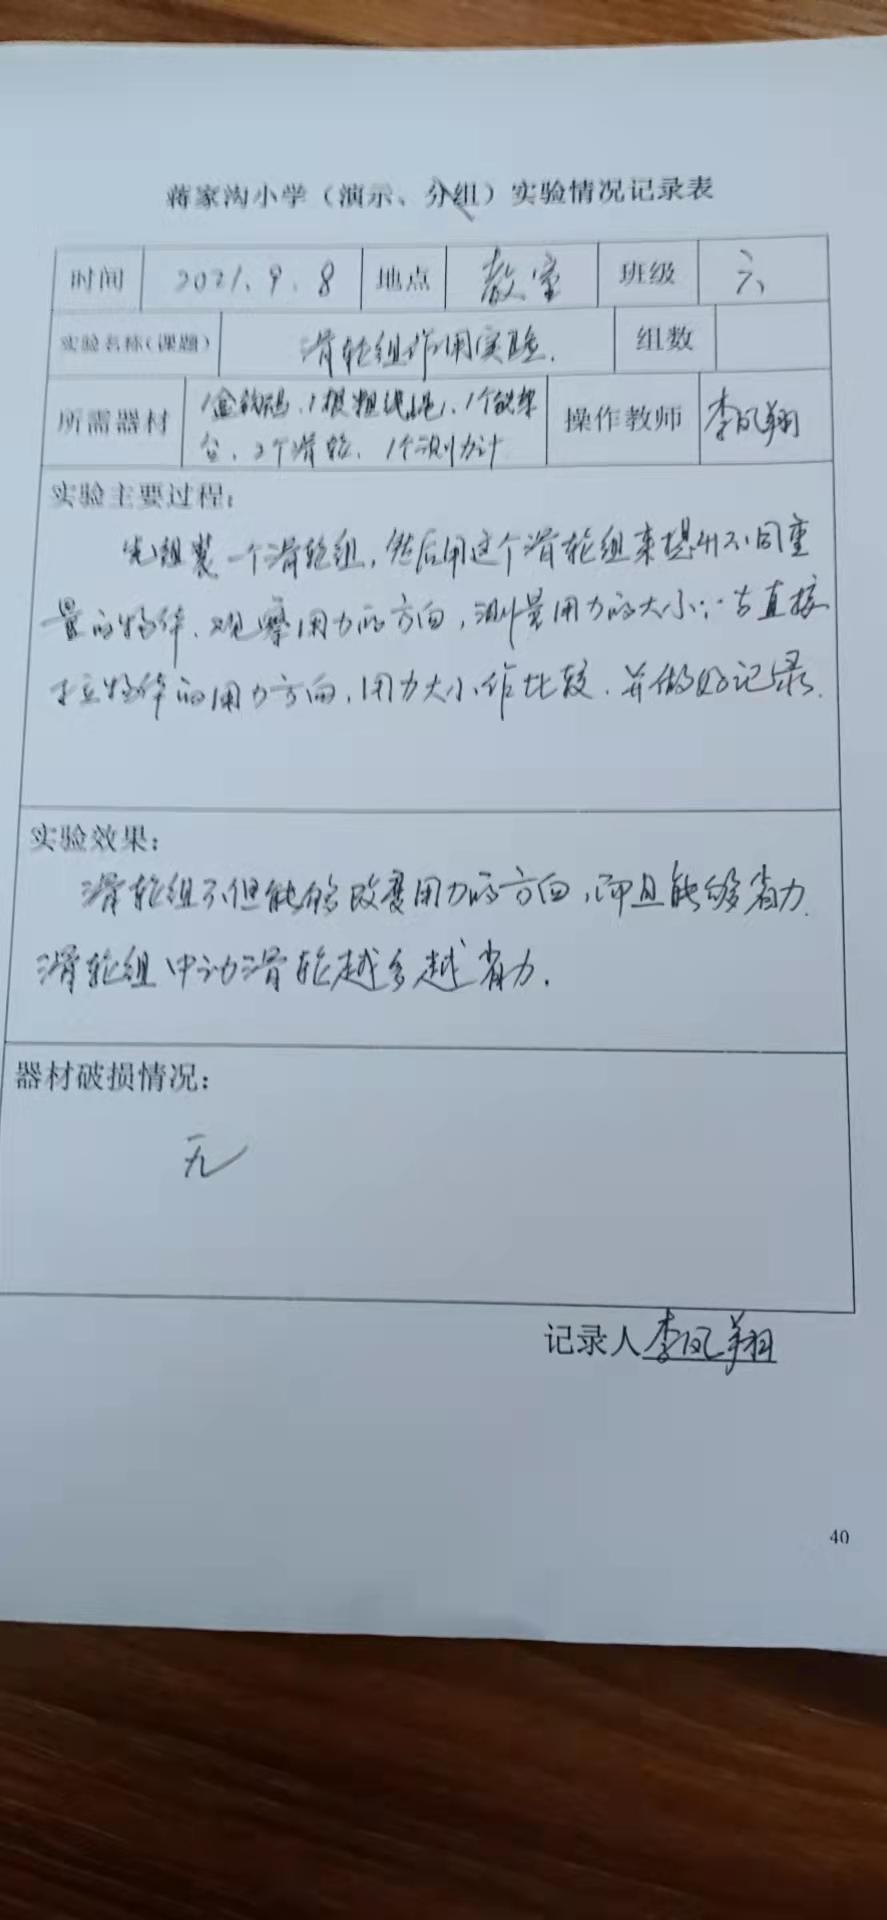 蒋家沟小学（演示、分组）实验情况记录表
时间 2021.9.8 地点 教室 班级 六
实验名称（课题） 滑轮组作用实验. 组数
所需器材 1盒钩码、1根粗线绳、1个铁架
台、2个滑轮、1个测力计 操作教师 李凤翔
实验主要过程：
先组装一个滑轮组，然后用这个滑轮组来提升不同重
量的物体、观察用力的方向，测量用力的大小；与直接
拉物体的用力方向、用力大小作比较、并做好记录.
实验效果：
滑轮组不但能够改变用力的方向，而且能够省力.
滑轮组中动滑轮越多越省力.
器材破损情况：
无
记录人李凤翔
40